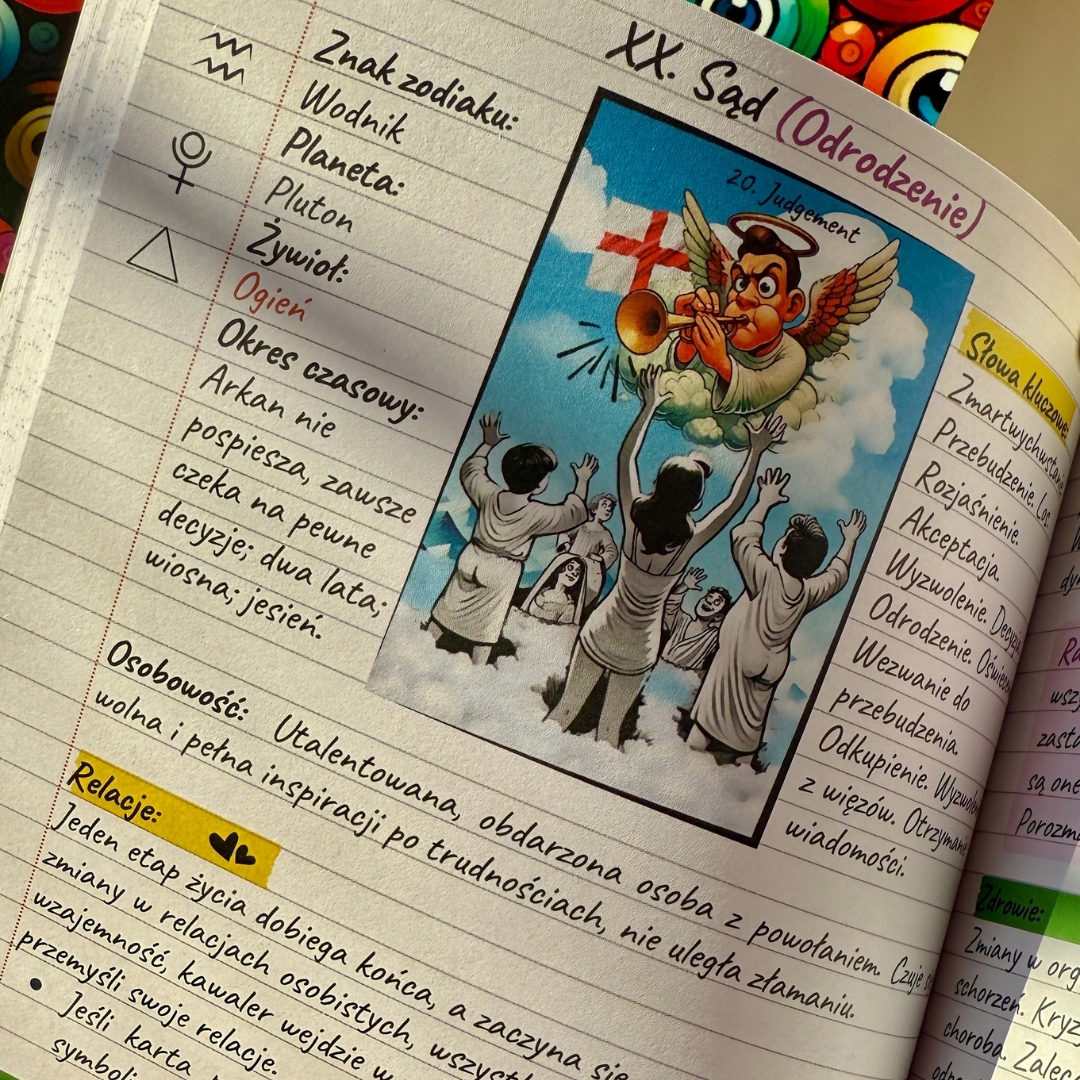 XX. Sąd (Odrodzenie)
Znak zodiaku:
Wodnik
Planeta:
Pluton
Żywioł:
Ogień
Okres czasowy:
Arkan nie
pospiesza, zawsze
czeka na pewne
decyzje; dwa lata;
wiosna; jesień.
20. Judgement
Słowa kluczowe:
Zmartwychwstanie
Przebudzenie. Los
Rozjaśnienie.
Akceptacja.
Wyzwolenie.
Odrodzenie.
Wezwanie do
przebudzenia
Odkupienie.
z więzów.
wiadomości.
Osobowość: Utalentowana, obdarzona osoba z powołaniem. Czuje
wolna i pełna inspiracji po trudnościach, nie uległa złamaniu.
Relacje:
Jeden etap życia dobiega końca, a zaczyna się
zmiany w relacjach osobistych,
wzajemność, kawaler wejdzie w
przemyśli swoje relacje.
• Jeśli karta
są one
Zdrowie:
Zmiany w
choroba.